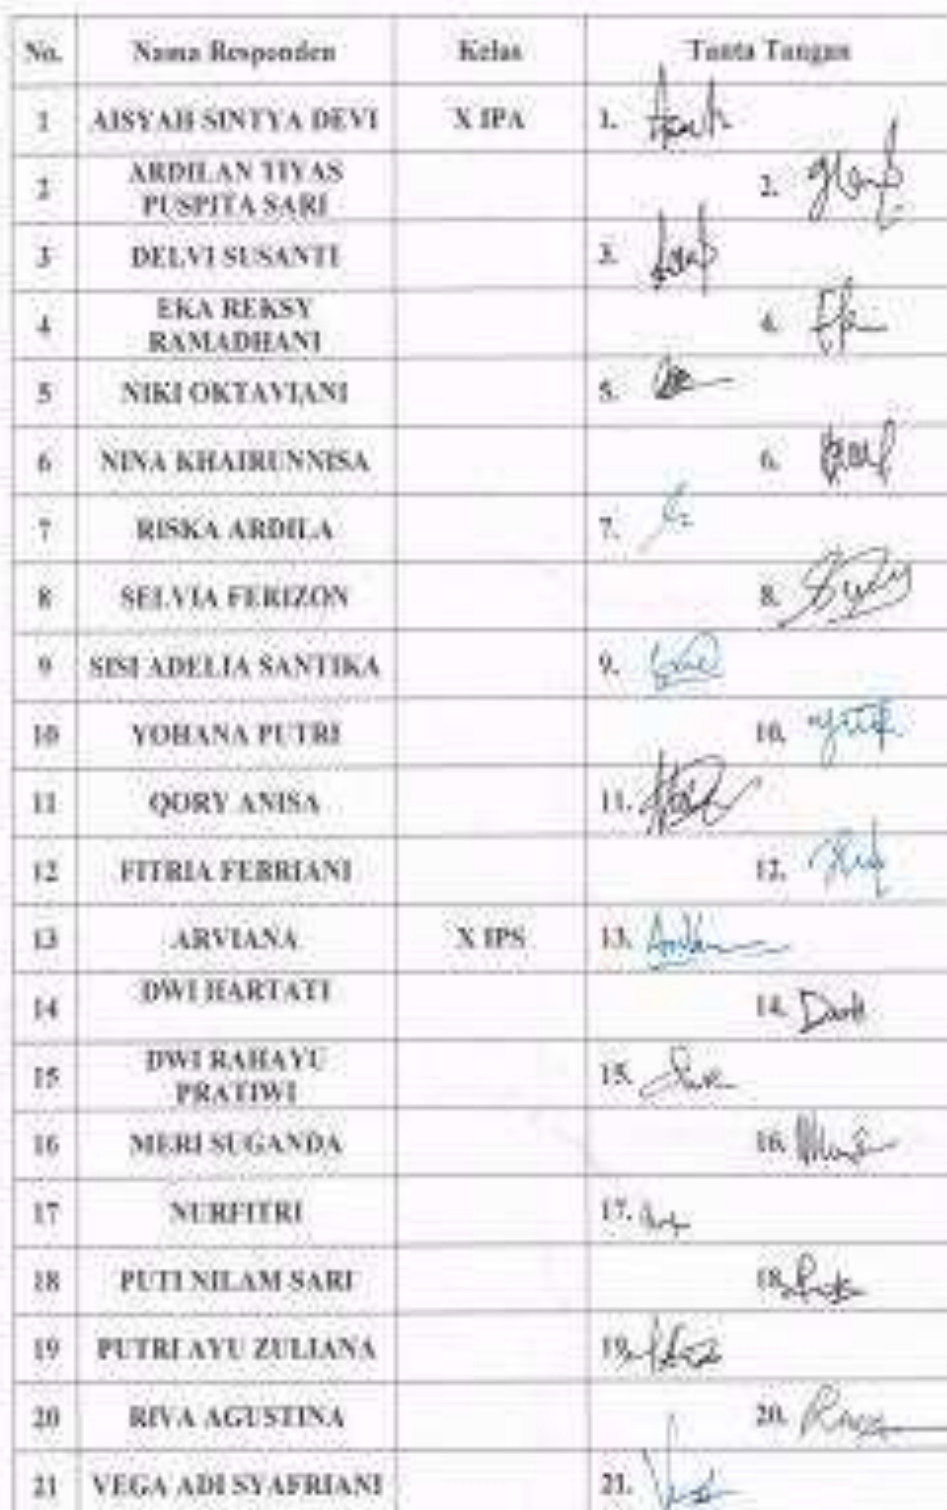 No. Nama Responden Kelas Tanta Tangan
1 AISYAH SINTYA DEVI X IPA 1.
2 ARDILAN TIYAS PUSPITA SARI 2.
3 DELVI SUSANTI 3.
4 EKA REKSY RAMADHANI 4.
5 NIKI OKTAVIANI 5.
6 NINA KHAIRUNNISA 6.
7 RISKA ARDILA 7.
8 SELVIA FERIZON 8.
9 SISI ADELIA SANTIKA 9.
10 YOHANA PUTRI 10.
11 QORY ANISA 11.
12 FITRIA FEBRIANI 12.
13 ARVIANA X IPS 13.
14 DWI HARTATI 14.
15 DWI RAHAYU PRATIWI 15.
16 MERI SUGANDA 16.
17 NURFITRI 17.
18 PUTI NILAM SARI 18.
19 PUTRI AYU ZULIANA 19.
20 RIVA AGUSTINA 20.
21 VEGA ADI SYAFRIANI 21.